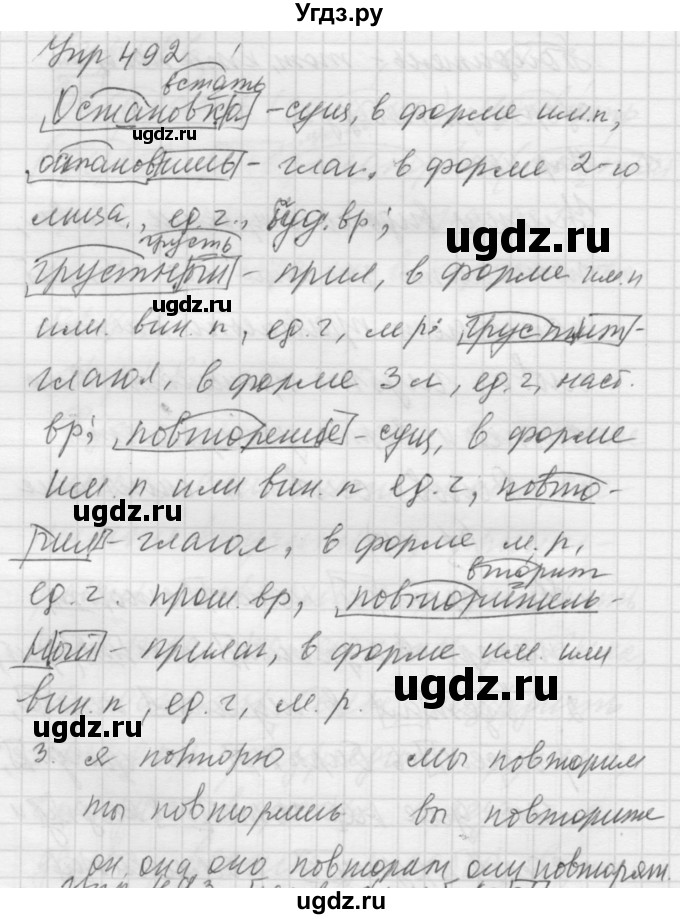 Угдз.ру
Упр 492
встать
Остановка - сущ, в форме им.п;
остановишь - глаг, в форме 2-го
лица., ед.г., буд.вр;
грусть
грустный - прил, в форме им.п
или вин.п, ед.г, м.р; грустит-
глагол, в форме 3 л, ед.г, наст.
вр; повторение - сущ, в форме
им.п или вин.п ед.г, повто-
рил - глагол, в форме м.п,
вторит
ед.г. прош.вр, повторитель-
ный - прилаг, в форме им. или
вин.п, ед.г, м.р.
3. я повторю мы повторим
ты повторишь вы повторите
он, она, оно повторит они повторят.
ugdz.ru
ugdz.ru
ugdz.ru
ugdz.ru
ugdz.ru
ugdz.ru
ugdz.ru
ugdz.ru